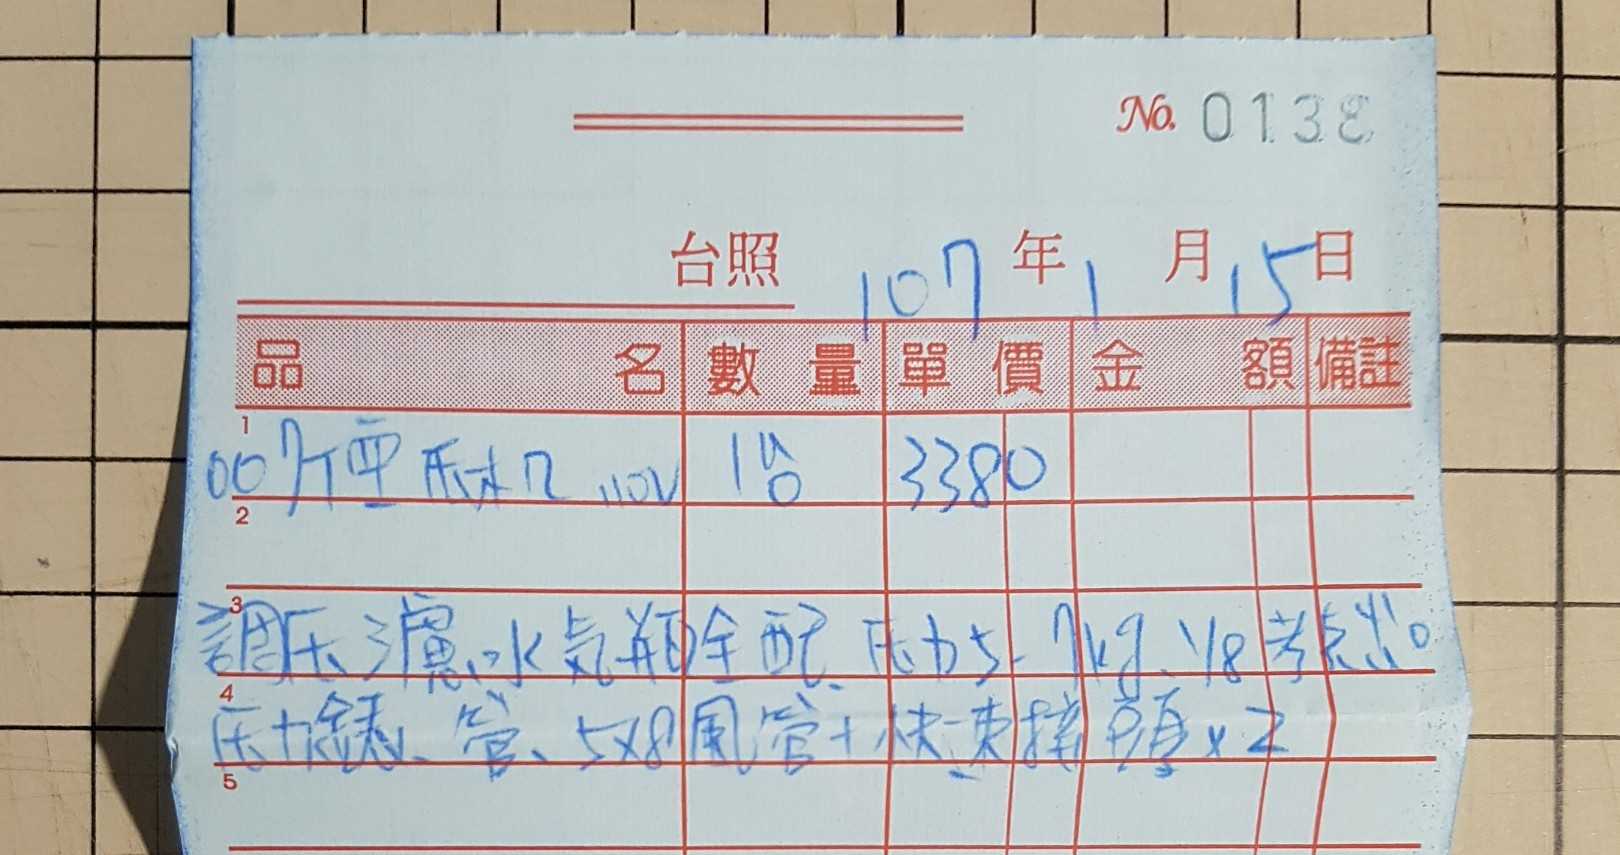 No. 0138
台照 107年1月15日
品名 數量 單價 金額 備註
1
007 空 110V 1台 3380
2
3
調压濾水気瓶全配、压力5-7kg、1/8
4
压力錶、管、5x8風管+快速接頭x2
5